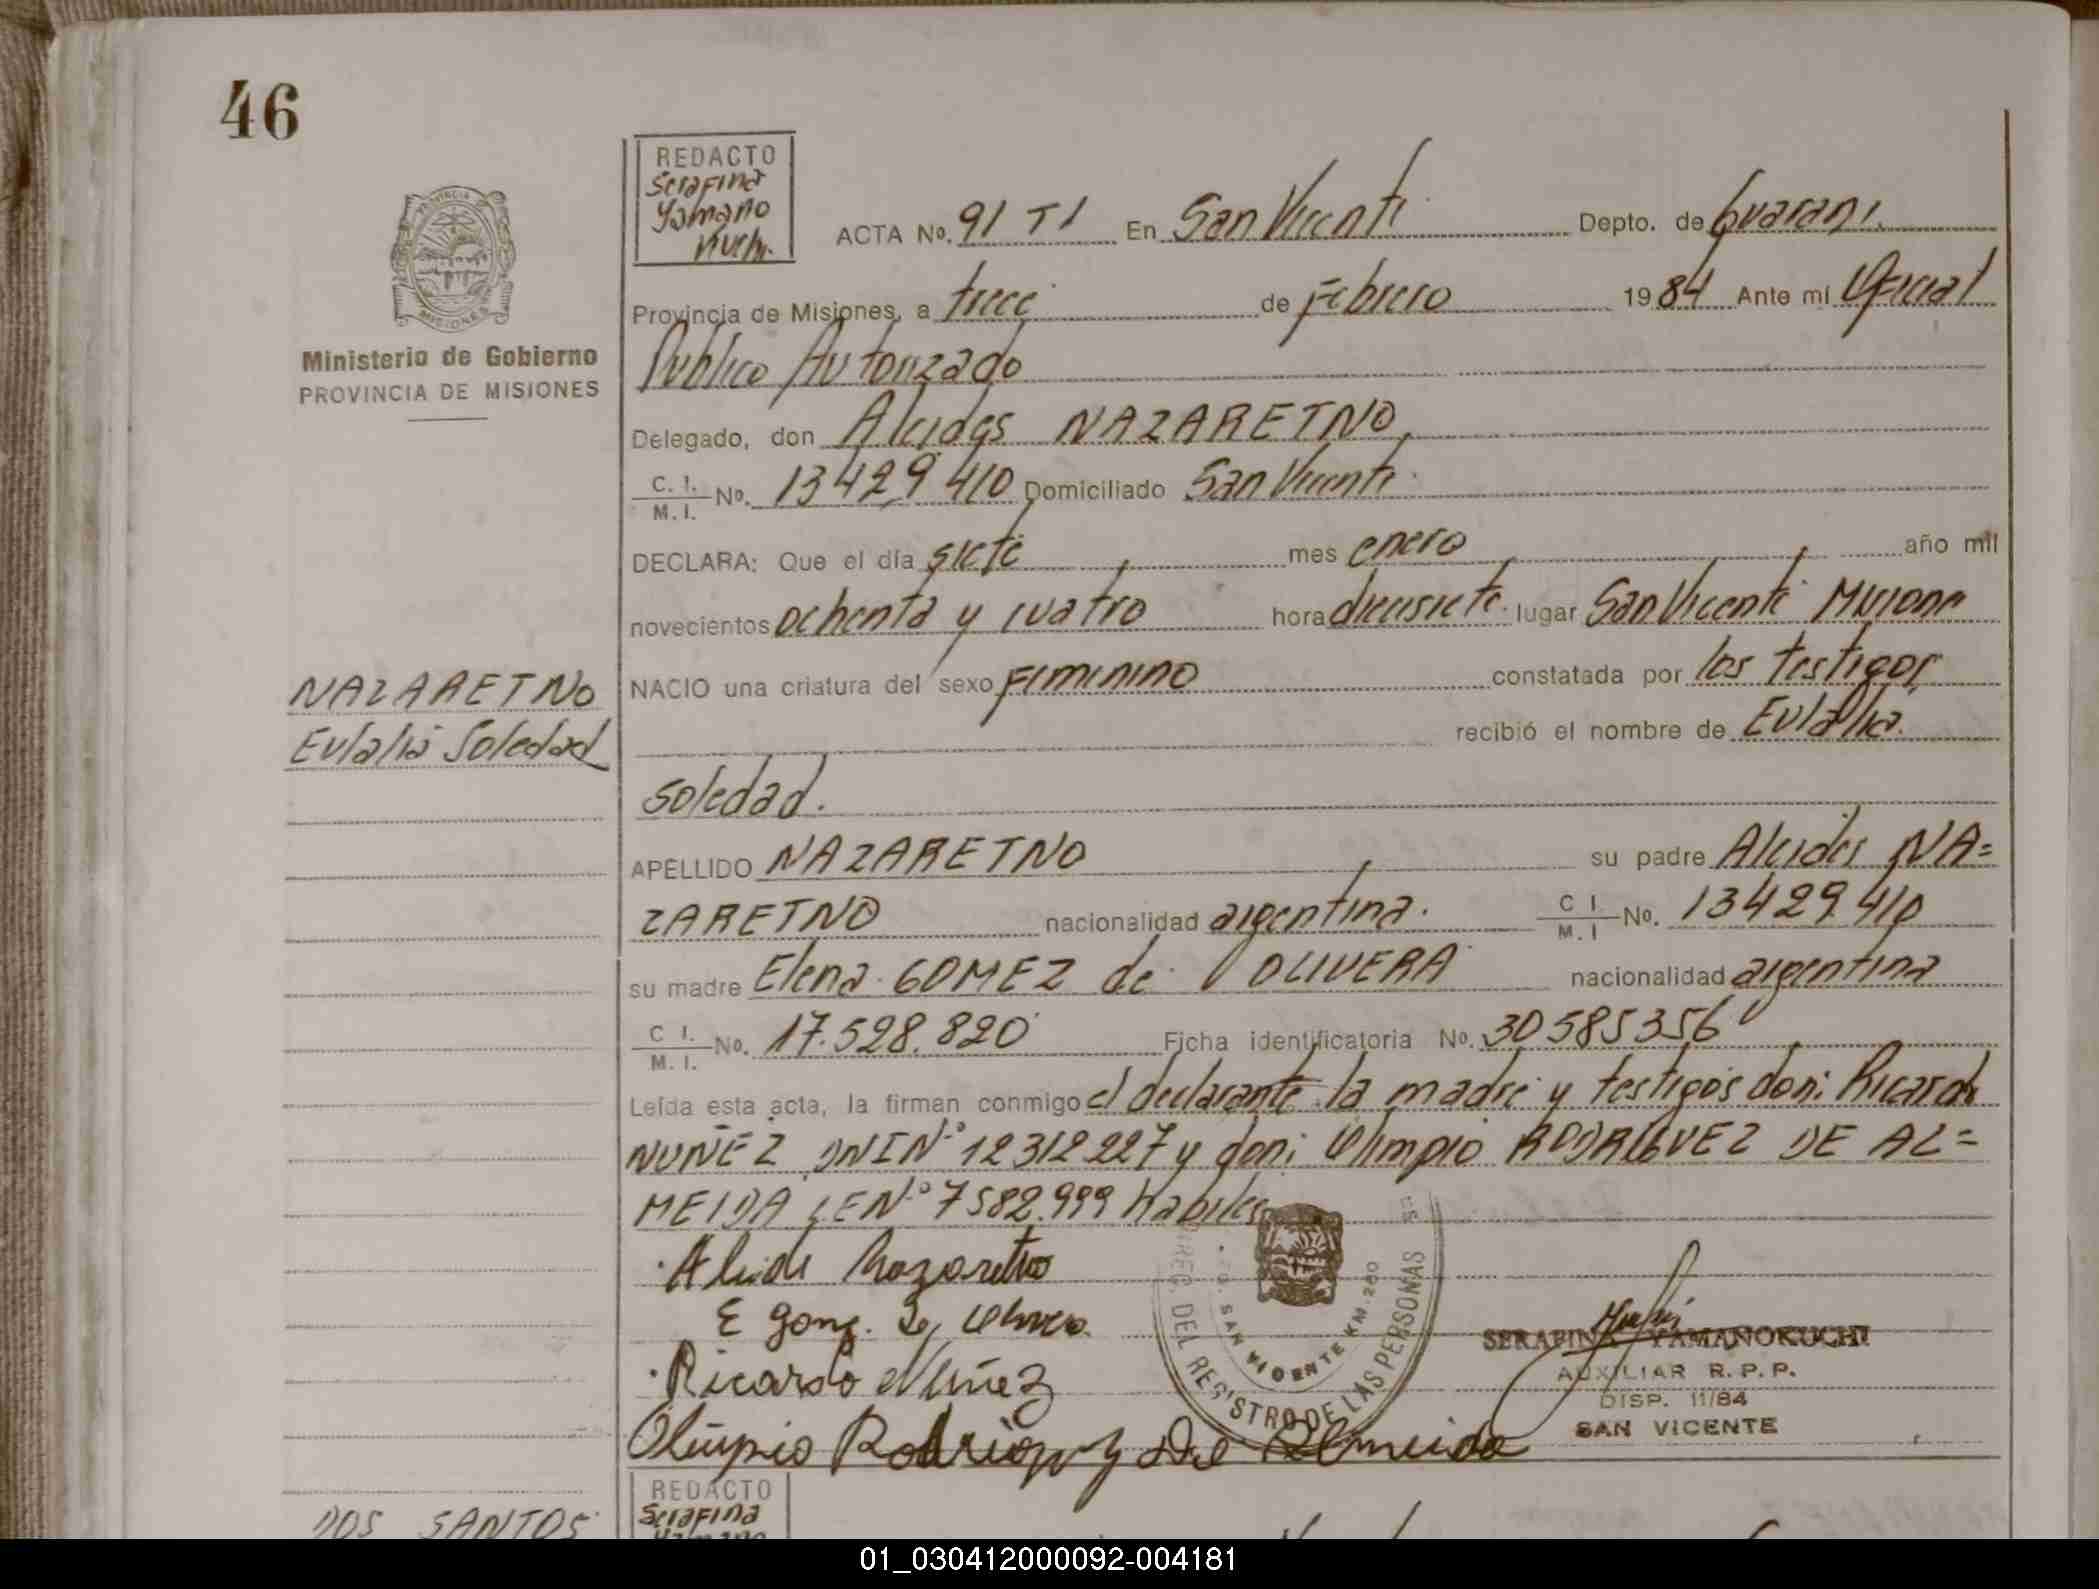 46
REDACTO
Serafina
Yamano
Kuchi.
PROVINCIA
MISIONES
Ministerio de Gobierno
PROVINCIA DE MISIONES
ACTA No. 91 T1 En San Vicente Depto. de Guarani.
Provincia de Misiones, a trece de Febrero 1984 Ante mí Oficial
Publico Autorizado
Delegado, don Alcides NAZARETNO
C. I.
M. I. No. 13429410 Domiciliado San Vicente.
DECLARA: Que el día siete mes enero año mil
novecientos ochenta y cuatro hora diecisiete. lugar San Vicente Misiones
NAZARETNO
Eulalia Soledad
NACIO una criatura del sexo FEMININO constatada por los testigos
recibió el nombre de Eulalia.
Soledad.
APELLIDO NAZARETNO su padre Alcides NA=
ZARETNO nacionalidad argentina. C I.
M. I No. 13429.410
su madre Elena GOMEZ de OLIVERA nacionalidad argentina
C I.
M. I. No. 17.528.820 Ficha identificatoria No. 30585356
Leída esta acta, la firman conmigo el declarante la madre y testigos don: Ricardo
NUÑEZ DNI Nº 12312227 y don: Olimpio RODRIGUEZ DE AL=
MEIDA LE Nº 7582.999 habiles
Alcides Nazaretno
E Gomz. De Olivera
Ricardo Nuñez
Olimpio Rodriguez De Almeida
DIREC. DEL REGISTRO DE LAS PERSONAS
SAN VICENTE KM. 260
SERAFINA YAMANOKUCHI
AUXILIAR R. P. P.
DISP. 11/84
SAN VICENTE
REDACTO
Serafina
Yamano
DOS SANTOS
01_030412000092-004181